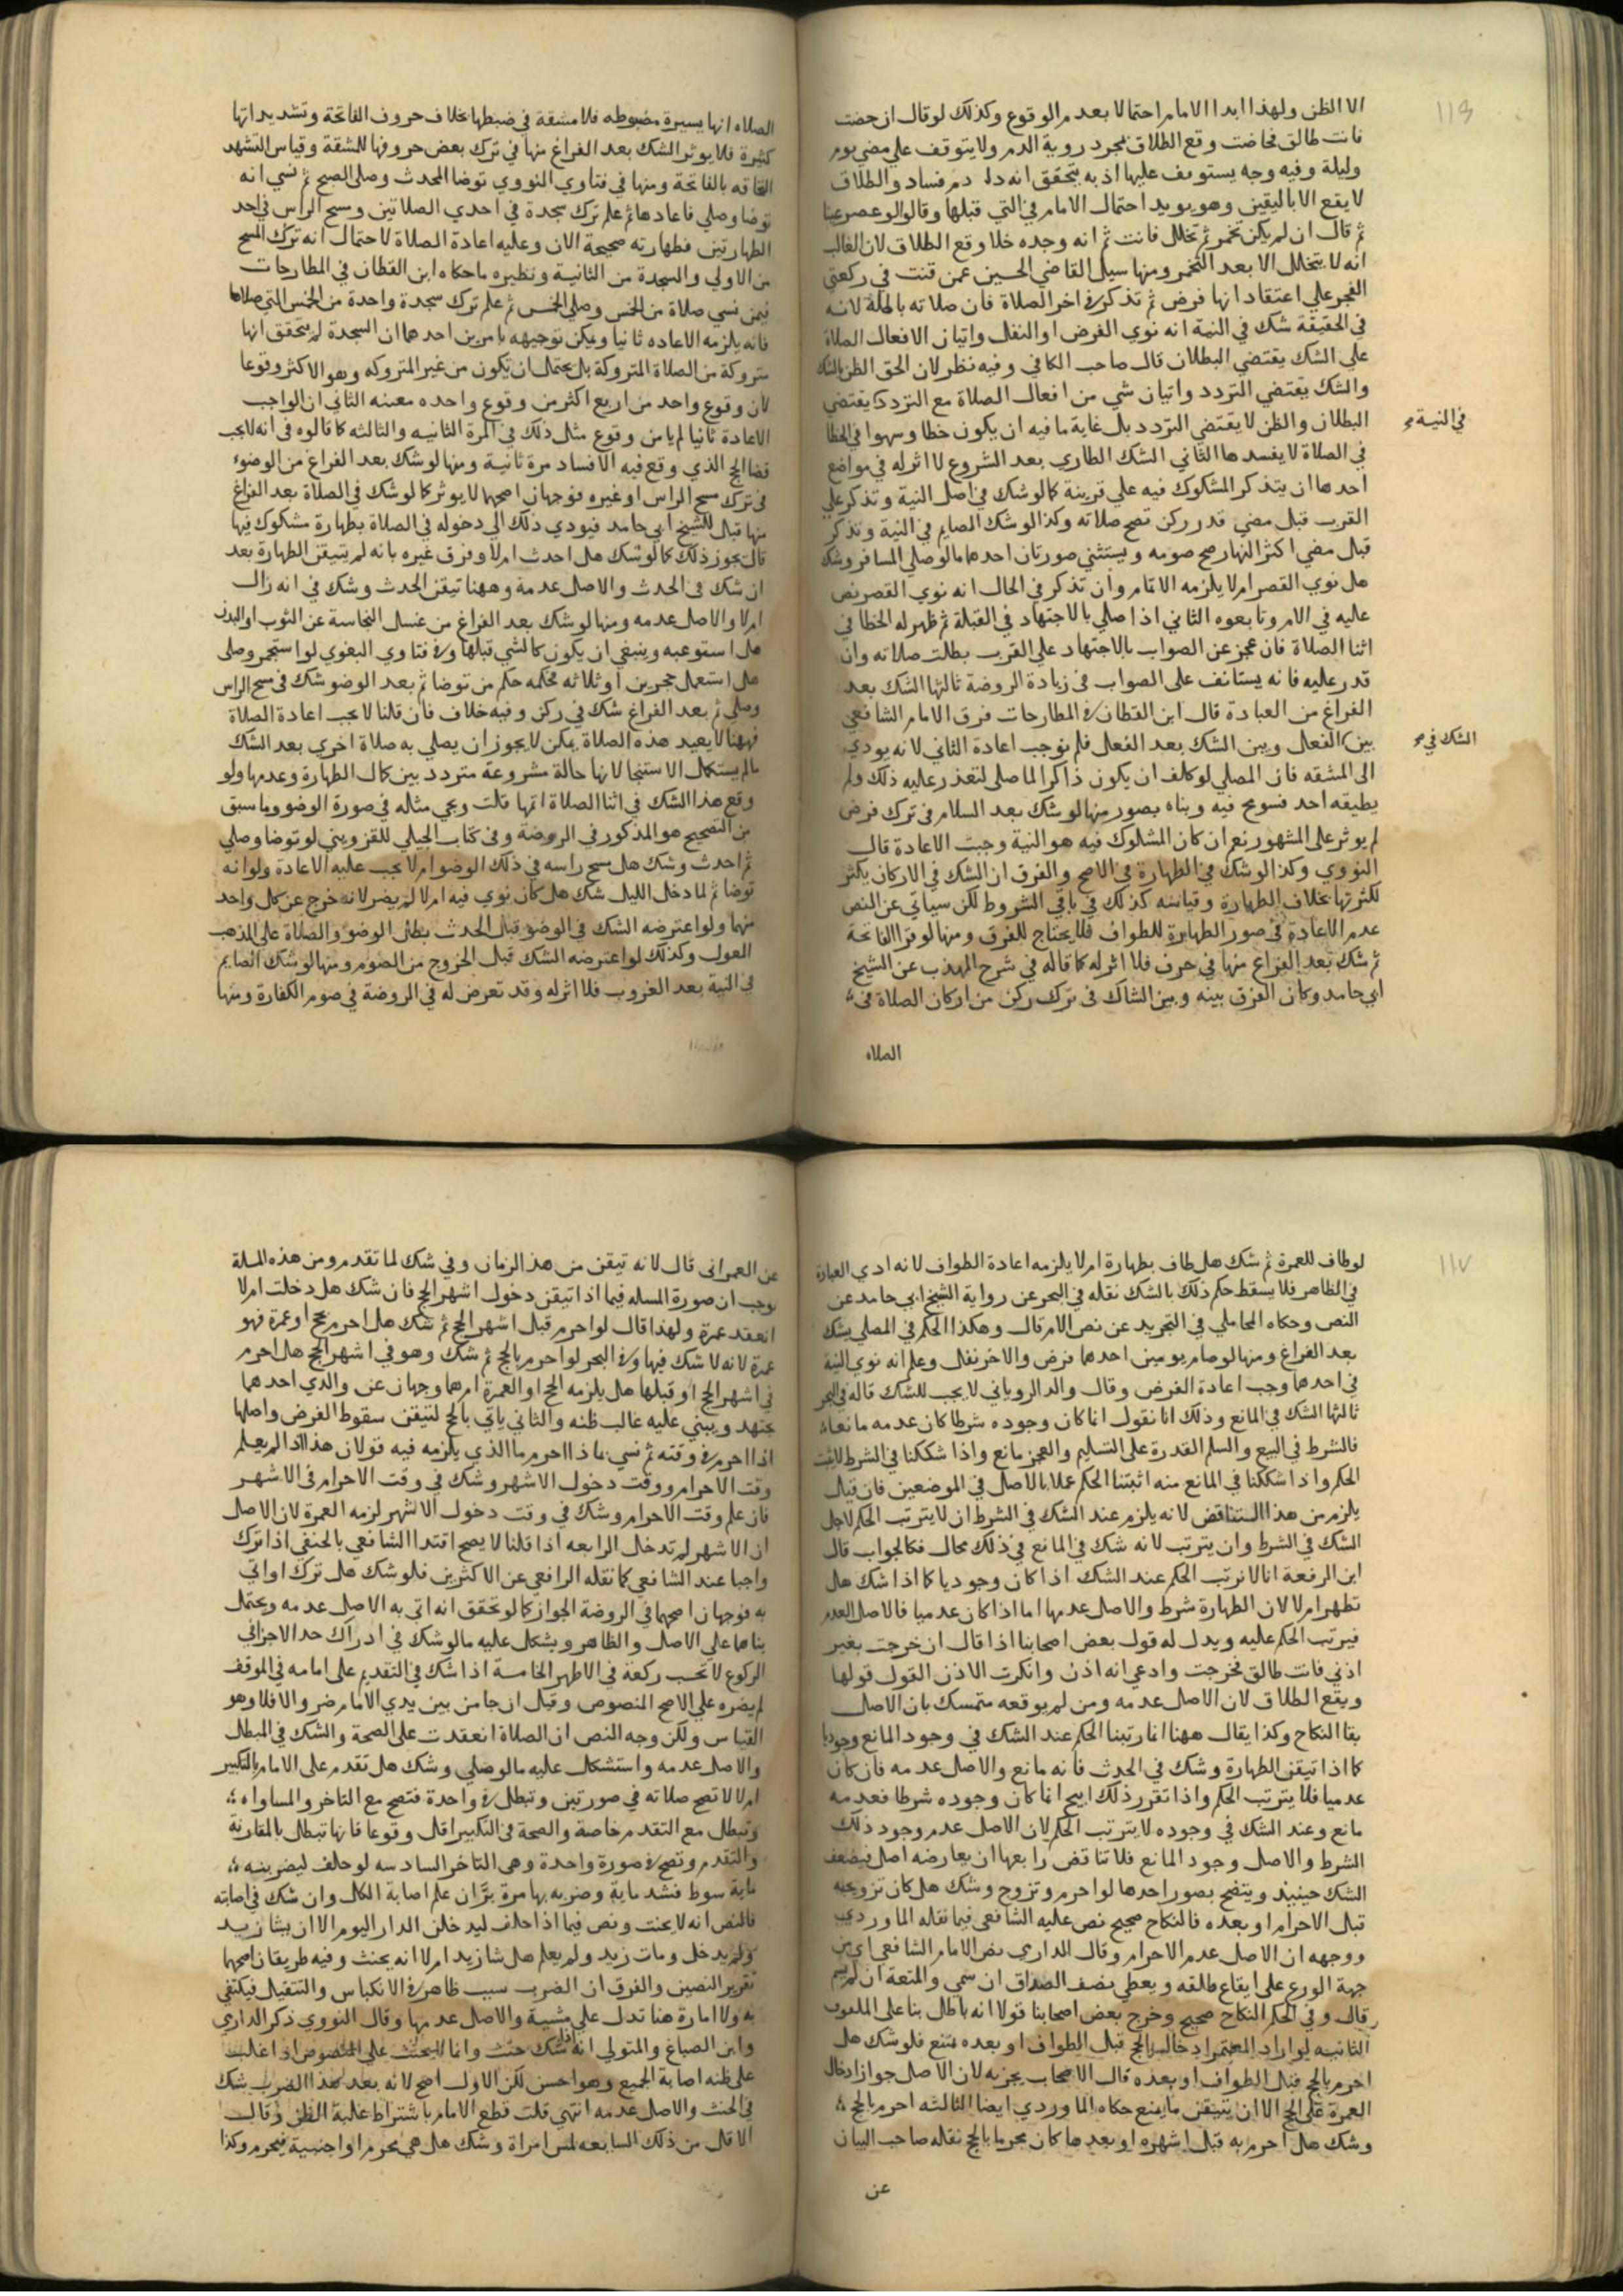 ١١٦
الا الظن ولهذا ابدا الامام احتمالا بعدم الوقوع وكذلك لو قال ان حضت
فانت طالق فحاضت وقع الطلاق بمجرد روية الدم ولا يتوقف علي مضي يوم
وليلة وفيه وجه يستوقف عليها اذ به يتحقق انه دم فساد والطلاق
لا يقع الا باليقين وهو يويد احتمال الامام في التي قبلها وقالوا لو عصر عنبا
ثم قال ان لم يكن تخمر ثم تخلل فانت ثم انه وجده خلا وقع الطلاق لان الغالب
انه لا يتخلل الا بعد التخمر ومنها سيل القاضي الحسين عمن قنت في ركعتي
الفجر علي اعتقاد انها فرض ثم تذكر في اخر الصلاة فان صلاته باطلة لانه
في الحقيقة شك في النية انه نوي الفرض او النفل واتيان الافعال الصلاة
علي الشك يقتضي البطلان قال صاحب الكافي وفيه نظر لان الحق الظن بالشك
والشك يقتضي التردد واتيان شي من افعال الصلاة مع التردد يقتضي
البطلان والظن لا يقتضي التردد بل غاية ما فيه ان يكون خطا وسهوا في الخطا
في النية
في الصلاة لا يفسدها الثاني الشك الطاري بعد الشروع لا اثر له في مواضع
احدها ان يتذكر المشكوك فيه علي قرينة كما لو شك في اصل النية وتذكر علي
القرب قبل مضي قدر ركن تصح صلاته وكذا لو شك الصايم في النية وتذكر
قبل مضي اكثر النهار صح صومه ويستثني صورتان احدهما ما لو صلي المسافر وشك
هل نوي القصر ام لا يلزمه الاتمام وان تذكر في الحال انه نوي القصر نص
عليه في الام وتابعوه الثاني اذا صلي بالاجتهاد في القبلة ثم ظهر له الخطا في
اثنا الصلاة فان عجز عن الصواب بالاجتهاد علي القرب بطلت صلاته وان
قدر عليه فانه يستانف على الصواب في زيادة الروضة ثالثها الشك بعد
الفراغ من العبادة قال ابن القطان في المطارحات فرق الامام الشافعي
بين الفعل وبين الشك بعد الفعل فلم يوجب اعادة الثاني لانه يودي
الشك في
الى المشقه فان المصلي لو كلف ان يكون ذاكرا لما صلى لتعذر عليه ذلك ولم
يطيقه احد فسومح فيه وبناه بصور منها لو شك بعد السلام في ترك فرض
لم يوثر على المشهور نعم ان كان المشكوك فيه هو النية وجبت الاعادة قال
النووي وكذا لو شك في الطهارة في الاصح والفرق ان الشك في الاركان يكثر
لكثرتها بخلاف الطهارة وقياسه كذلك في باقي الشروط لكن سياتي عن النص
عدم الاعادة في صور الطهارة للطواف فلا يحتاج للفرق ومنها لو قرا الفاتحة
ثم شك بعد الفراغ منها في حرف فلا اثر له كما قاله في شرح المهذب عن الشيخ
ابي حامد وكان الفرق بينه وبين الشاك في ترك ركن من اركان الصلاة في
الصلاه
الصلاه انها يسيرة مضبوطه فلا مشقة في ضبطها بخلاف حروف الفاتحة وتشديداتها
كثيرة فلا يوثر الشك بعد الفراغ منها في ترك بعض حروفها للمشقة وقياس التشهد
الحاقه بالفاتحة ومنها في فتاوي النووي توضا المحدث وصلى الصبح ثم نسي انه
توضا وصلي فاعادها ثم علم ترك سجدة في احدي الصلاتين ومسح الراس في احد
الطهارتين فطهارته صحيحة الان وعليه اعادة الصلاة لاحتمال انه ترك المسح
من الاولي والسجدة من الثانية ونظيره ما حكاه ابن القطان في المطارحات
فيمن نسي صلاة من الخمس وصلى الخمس ثم علم ترك سجدة واحدة من الخمس التي صلاها
فانه يلزمه الاعاده ثانيا ويمكن توجيهه بامرين احدهما ان السجدة لم يتحقق انها
متروكة من الصلاة المتروكة بل يحتمل ان تكون من غير المتروكه وهو الاكثر وقوعا
لان وقوع واحد من اربع اكثر من وقوع واحده معينه الثاني ان الواجب
الاعادة ثانيا لم يامن وقوع مثل ذلك في المرة الثانيه والثالثه كما قالوه في انه لا يجب
قضا الحج الذي وقع فيه الافساد مرة ثانية ومنها لو شك بعد الفراغ من الوضوء
في ترك مسح الراس او غيره فوجهان اصحهما لا يوثر كما لو شك في الصلاة بعد الفراغ
منها قبل للشيخ ابي حامد فيودي ذلك الي دخوله في الصلاة بطهارة مشكوك فيها
قال يجوز ذلك كما لو شك هل احدث ام لا وفرق غيره بانه لم يتيقن الطهارة بعد
ان شك في الحدث والاصل عدمه وههنا تيقن الحدث وشك في انه زال
ام لا والاصل عدمه ومنها لو شك بعد الفراغ من غسل النجاسة عن الثوب او البدن
هل استوعبه وينبغي ان يكون كالشي قبلها وفي فتاوي البغوي لو استجمر وصلى
هل استعمل حجرين او ثلاثه فحكمه حكم من توضا ثم بعد الوضو شك في مسح الراس
وصلي ثم بعد الفراغ شك في ركن وفيه خلاف فان قلنا لا يجب اعادة الصلاة
فههنا لا يعيد هذه الصلاة يمكن لا يجوز ان يصلي به صلاة اخري بعد الشك
ما لم يستكمل الاستنجا لانها حالة مشروعة متردد بين كمال الطهارة وعدمها ولو
وقع هذا الشك في اثنا الصلاة اتمها قلت ويجي مثله في صورة الوضو وما سبق
من التصحيح هو المذكور في الروضة وفي كتاب الجيلي للقزويني لو توضا وصلي
ثم احدث وشك هل مسح راسه في ذلك الوضو ام لا يجب عليه الاعادة ولو انه
توضا ثم لما دخل الليل شك هل كان نوي فيه ام لا لم يضر لانه خرج عن كل واحد
منهما ولو اعترضه الشك في الوضو قبل الحدث بطل الوضو والصلاة على المذهب
القول وكذلك لو اعترضه الشك قبل الخروج من الصوم ومنها لو شك الصايم
في النية بعد الغروب فلا اثر له وقد تعرض له في الروضة في صوم الكفارة ومنها
١١٧
لو طاف للعمرة ثم شك هل طاف بطهارة ام لا يلزمه اعادة الطواف لانه ادي العبادة
في الظاهر فلا يسقط حكم ذلك بالشك نقله في البحر عن رواية الشيخ ابي حامد عن
النص وحكاه المحاملي في التجريد عن نص الام قال وهكذا الحكم في المصلي يشك
بعد الفراغ ومنها لو صام يومين احدهما فرض والاخر نفل وعلم انه نوي النية
في احدهما وجب اعادة الفرض وقال والد الروياني لا يجب للشك قاله في البحر
ثالثها الشك في المانع وذلك انا نقول انما كان وجوده شرطا كان عدمه مانعا
فالشرط في البيع والسلم القدرة على التسليم والعجز مانع واذا شككنا في الشرط لا يثبت
الحكم واذا شككنا في المانع منه اثبتنا الحكم عملا بالاصل في الموضعين فان قيل
يلزم من هذا التناقض لانه يلزم عند الشك في الشرط ان لا يترتب الحكم لاجل
الشك في الشرط وان يترتب لانه شك في المانع في ذلك محال فكالجواب قال
ابن الرفعة انا لا نرتب الحكم عند الشك اذا كان وجوديا كما اذا شك هل
تطهر ام لا لان الطهارة شرط والاصل عدمها اما اذا كان عدميا فالاصل العدم
فيرتب الحكم عليه ويدل له قول بعض اصحابنا اذا قال ان خرجت بغير
اذني فانت طالق فخرجت وادعي انه اذن وانكرت الاذن القول قولها
ويقع الطلاق لان الاصل عدمه ومن لم يوقعه متمسك بان الاصل
بقا النكاح وكذا يقال ههنا انما رتبنا الحكم عند الشك في وجود المانع وجوديا
كما اذا تيقن الطهارة وشك في الحدث فانه مانع والاصل عدمه فان كان
عدميا فلا يترتب الحكم واذا تقرر ذلك ايبح انما كان وجوده شرطا فعدمه
مانع وعند الشك في وجوده لا يترتب الحكم لان الاصل عدم وجود ذلك
الشرط والاصل وجود المانع فلا تناقض رابعها ان يعارضه اصل فيضعف
الشك حينيذ ويتضح بصور احدها لو احرم وتزوج وشك هل كان تزويجه
قبل الاحرام او بعده فالنكاح صحيح نص عليه الشافعي فيما نقله الماوردي
ووجهه ان الاصل عدم الاحرام وقال الدارمي نص الامام الشافعي اي من
جهة الورع على ايقاع طلقه ويعطي نصف الصداق ان سمي والمتعة ان لم يسم
قال وفي الحكم النكاح صحيح وخرج بعض اصحابنا قولا انه باطل بنا على الملفوف
الثانيه لو اراد المعتمر ادخال الحج قبل الطواف او بعده يمتنع فلو شك هل
احرم بالحج قبل الطواف او بعده قال الاصحاب يجزيه لان الاصل جواز ادخال
العمرة على الحج الا ان يتيقن ما يمنع حكاه الماوردي ايضا الثالثه احرم بالحج
وشك هل احرم به قبل اشهره او بعدها كان محرما بالحج نقله صاحب البيان
عن
عن العمراني قال لانه تيقن من هذ الزمان وفي شك لما تقدم ومن هذه المسلة
يوجب ان صورة المسله فيما اذا تيقن دخول اشهر الحج فان شك هل دخلت ام لا
انعقد عمرة ولهذا قال لو احرم قبل اشهر الحج ثم شك هل احرم بحج او عمرة فهو
عمرة لانه لا شك فيها وفي البحر لو احرم بالحج ثم شك وهو في اشهر الحج هل احرم
في اشهر الحج او قبلها هل يلزمه الحج او العمرة ام هما وجهان عن والدي احدهما
يجتهد ويبني عليه غالب ظنه والثاني ياتي بالحج لتيقن سقوط الفرض واصلها
اذا احرم في وقته ثم نسي بماذا احرم ما الذي يلزمه فيه قولان هذا اذا لم يعلم
وقت الاحرام ووقت دخول الاشهر وشك في وقت الاحرام في الاشهر
فان علم وقت الاحرام وشك في وقت دخول الاشهر لزمه العمرة لان الاصل
ان الاشهر لم تدخل الرابعه اذا قلنا لا يصح اقتدا الشافعي بالحنفي اذا ترك
واجبا عند الشافعي كما نقله الرافعي عن الاكثرين فلو شك هل ترك او اتي
به فوجهان اصحهما في الروضة الجواز كما لو تحقق انه اتي به الاصل عدمه ويحتمل
بناهما علي الاصل والظاهر ويشكل عليه ما لو شك في ادراك حد الاجزا في
الركوع لا تحسب ركعة في الاظهر الخامسة اذا شك في التقديم على امامه في الموقف
لم يضره علي الاصح المنصوص وقيل ان جا من بين يدي الامام ضر والا فلا وهو
القياس ولكن وجه النص ان الصلاة انعقدت على الصحة والشك في المبطل
والاصل عدمه واستشكل عليه ما لو صلي وشك هل تقدم على الامام بالتكبير
ام لا لا تصح صلاته في صورتين وتبطل في واحدة فتصح مع التاخر والمساواه
وتبطل مع التقدم خاصة والصحة في التكبير اقل وقوعا فانها تبطل بالمقارنة
والتقدم وتصح في صورة واحدة وهي التاخر السادسه لو حلف ليضربنه
ماية سوط فشد ماية وضربه بها مرة برَّ ان علم اصابة الكل وان شك في اصابته
فالنص انه لا يحنث ونص فيما اذا حلف ليدخلن الدار اليوم الا ان يشا زيد
ولم يدخل ومات زيد ولم يعلم هل شا زيد ام لا انه يحنث وفيه طريقان اصحهما
تقرير النصين والفرق ان الضرب سبب ظاهر في الانكباس والتثقيل فيكتفي
به ولا امارة هنا تدل علي مشية والاصل عدمها وقال النووي ذكر الدارمي
وابن الصباغ والمتولي انه اذا شك حنث وانما لا يحنث علي المنصوص اذا غلب
على ظنه اصابة الجميع وهو احسن لكن الاول اصح لانه بعد هذا الضرب شك
في الحنث والاصل عدمه انتهي قلت قطع الامام باشتراط غلبة الظن وقال
الاقل من ذلك السابعه لمس امراة وشك هل هي محرم او اجنبية فيحرم وكذا